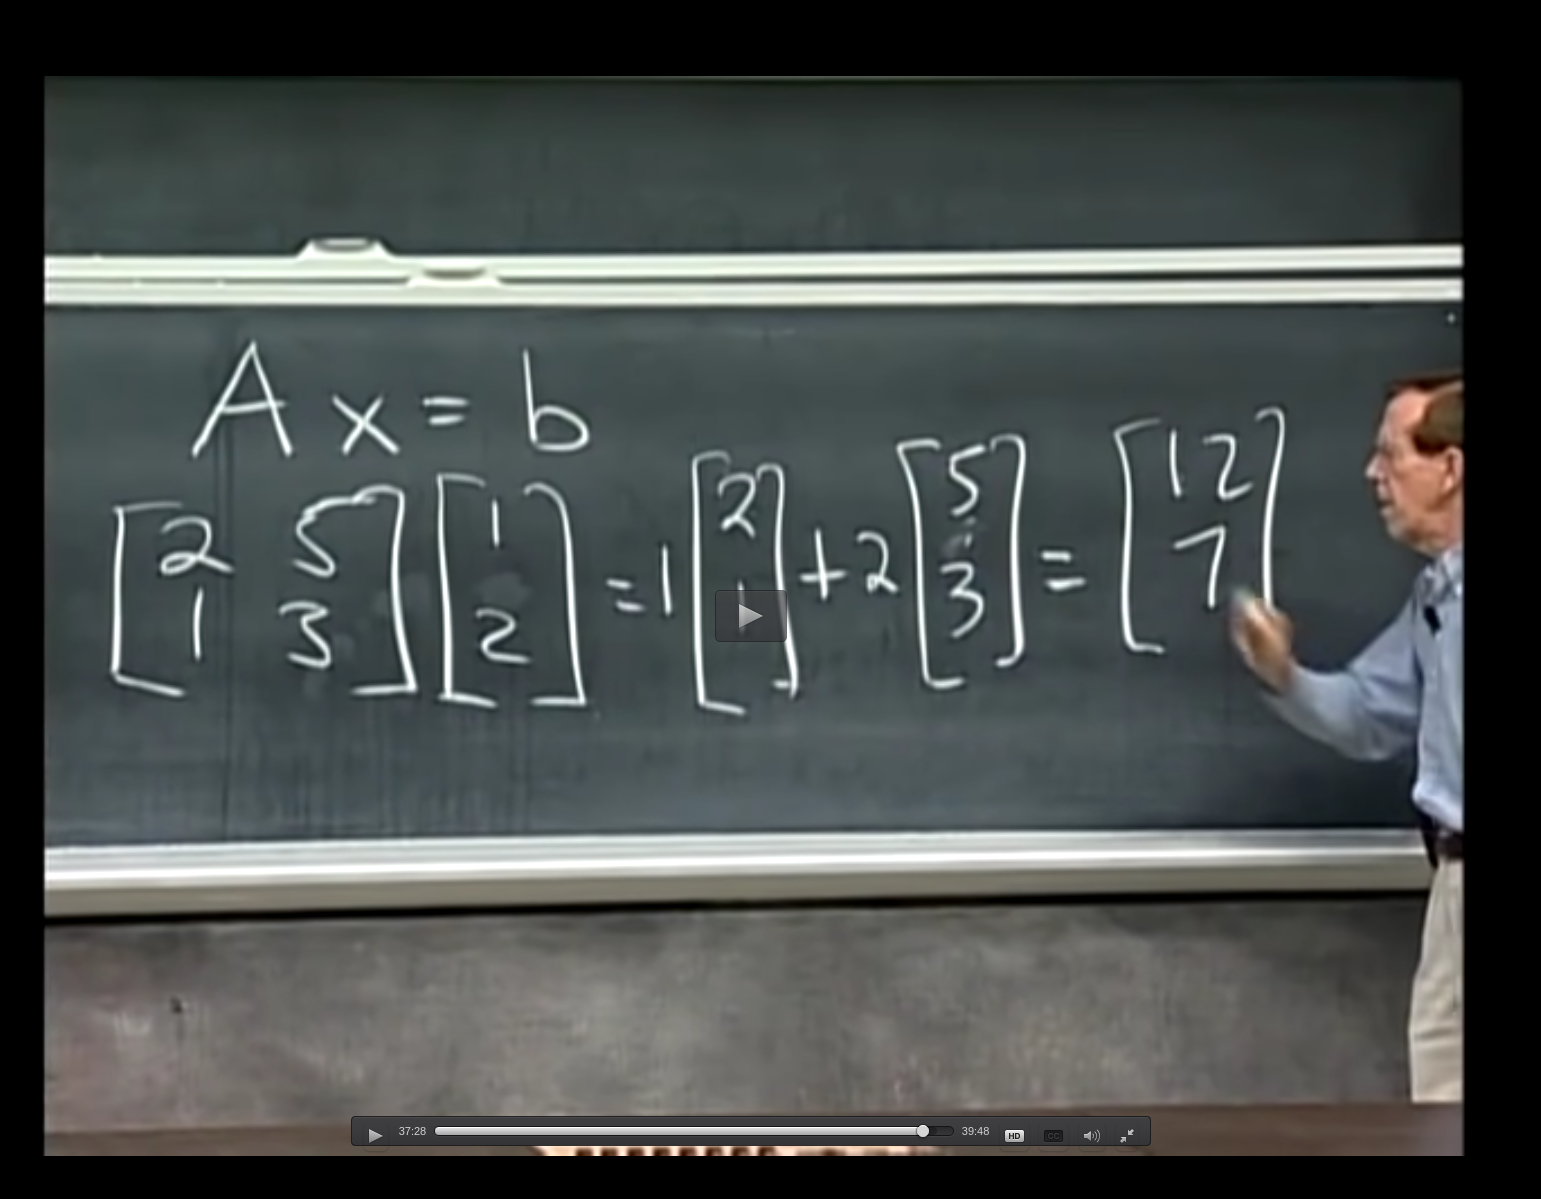 A x = b
[2 5; 1 3] [1; 2] = 1 [2; 1] + 2 [5; 3] = [12; 7]
37:28 39:48 HD CC